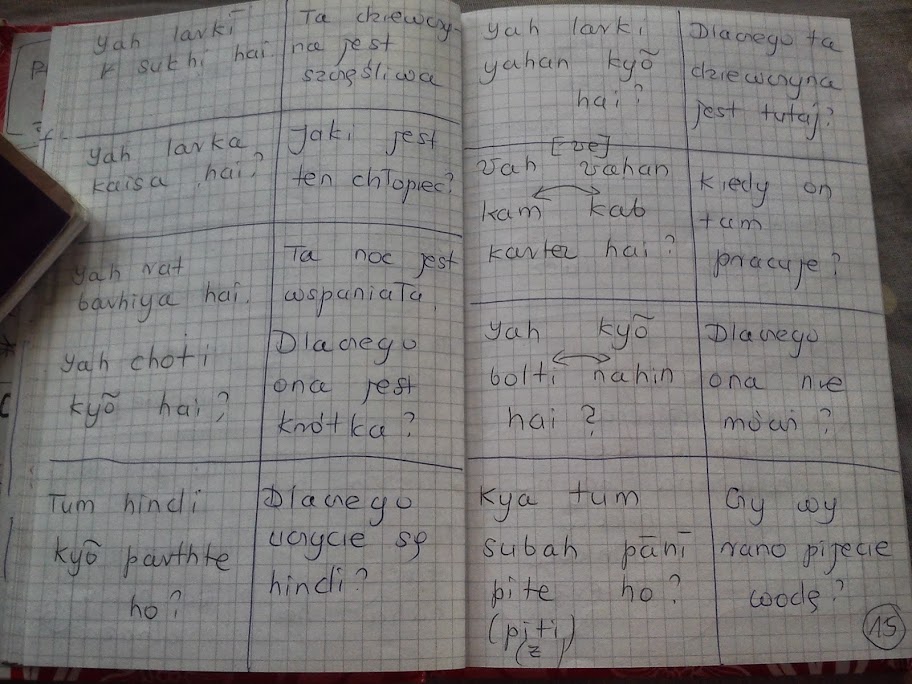 Yah larkī
sukhi hai.
Ta dziewczy-
na jest
szczęśliwa
Yah larka
kaisa hai?
Jaki jest
ten chłopiec?
Yah rat
barhiya hai.
Ta noc jest
wspaniała.
Yah choti
kyõ hai?
Dlaczego
ona jest
krótka?
Tum hindi
kyõ parthte
ho?
Dlaczego
uczycie się
hindi?
Yah larki
yahan kyõ
hai?
Dlaczego ta
dziewczyna
jest tutaj?
[ve]
Vah vahan
kam kab
karter hai?
Kiedy on
tam
pracuje?
Yah kyõ
bolti nahin
hai?
Dlaczego
ona nie
mówi?
Kya tum
subah pānī
pite ho?
(piti)
(ż)
Czy wy
rano pijecie
wodę?
15